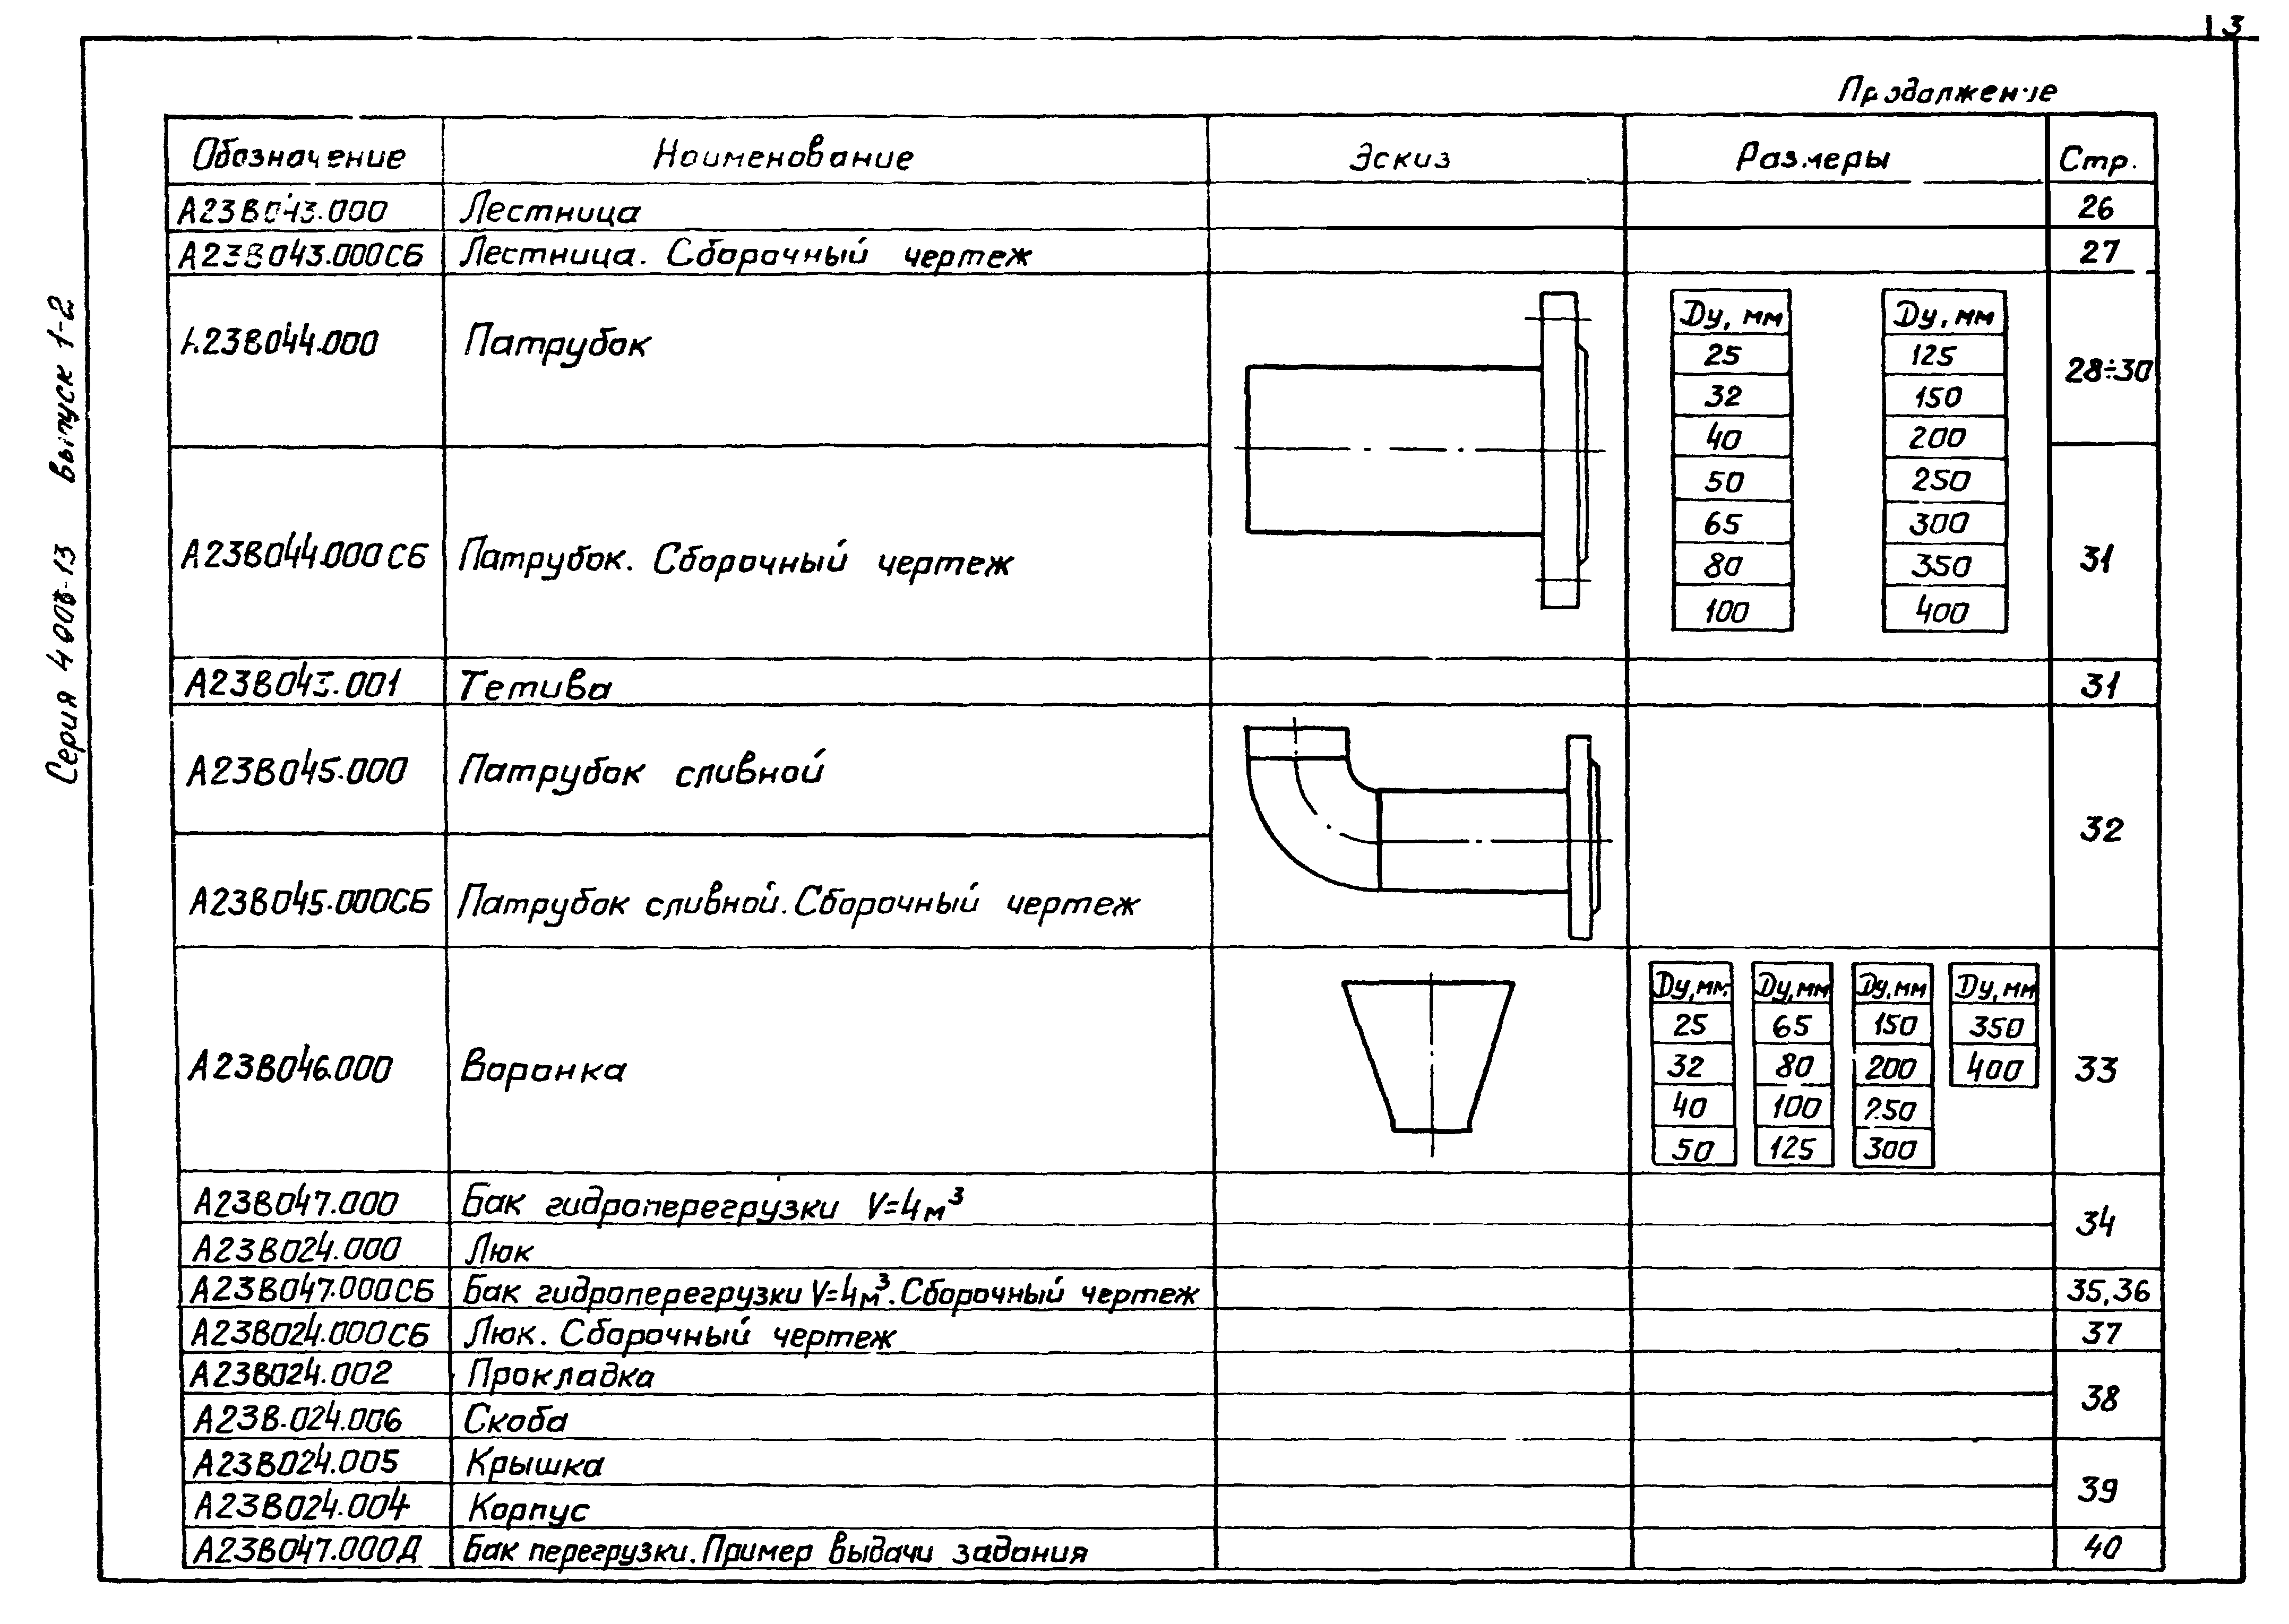 3
Продолжение
Обозначение Наименование Эскиз Размеры Стр.
А23В043.000 Лестница 26
А23В043.000СБ Лестница. Сборочный чертеж 27
А23В044.000 Патрубок 28÷30
Ду, мм Ду, мм
25 125
32 150
40 200
50 250
65 300
80 350
100 400
А23В044.000СБ Патрубок. Сборочный чертеж 31
А23В043.001 Тетива 31
А23В045.000 Патрубок сливной 32
А23В045.000СБ Патрубок сливной. Сборочный чертеж
А23В046.000 Воронка 33
Ду, мм Ду, мм Ду, мм Ду, мм
25 65 150 350
32 80 200 400
40 100 250
50 125 300
А23В047.000 Бак гидроперегрузки V=4м³ 34
А23В024.000 Люк
А23В047.000СБ Бак гидроперегрузки V=4м³. Сборочный чертеж 35,36
А23В024.000СБ Люк. Сборочный чертеж 37
А23В024.002 Прокладка 38
А23В.024.006 Скоба
А23В024.005 Крышка 39
А23В024.004 Корпус
А23В047.000Д Бак перегрузки. Пример выдачи задания 40
Серия Выпуск 1-2